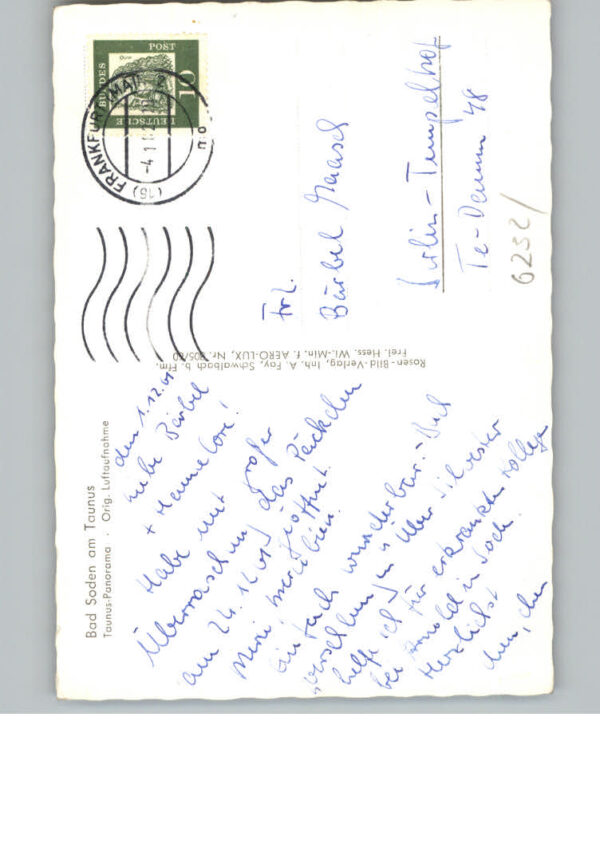 Bad Soden am Taunus
Taunus-Panorama · Orig. Luftaufnahme
den 1.12.61
Liebe Bärbel
+ Hannelore!
Habe mit
Überraschung großer
am 24.12. das Päckchen
geöffnet.
Merci,
einfach wunderbar. - Buch
helfe ich für erkrankten Kollegen
bei Arnold in Sod.
Herzlichst
Rosen-Bild-Verlag, Inh. A. Fay, Schwalbach b. Ffm.
Frei. Hess. Wi.-Min. f. AERO-LUX, Nr. 805/60
DEUTSCHE
BUNDES
POST
10
(16) FRANKFURT (MAIN)
-4.1.62
Frl.
Bärbel Haasch
Berlin-Tempelhof
Te-Damm 48
6232/